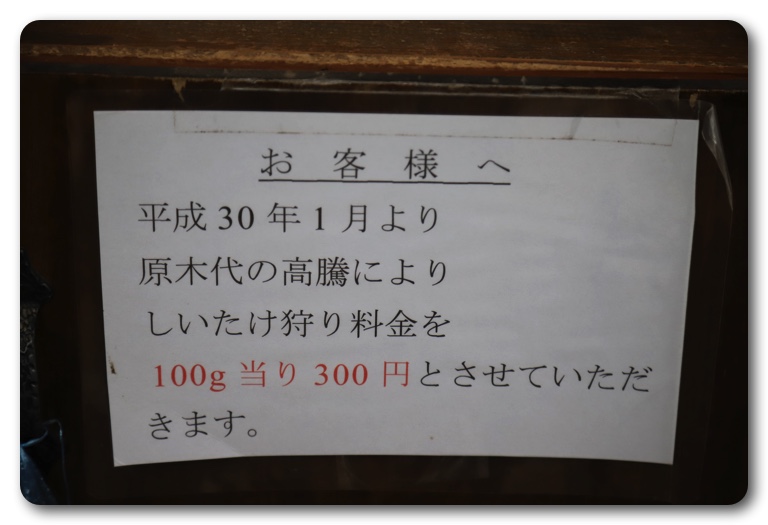 お客様へ
平成30年1月より
原木代の高騰により
しいたけ狩り料金を
100g当り300円とさせていただ
きます。